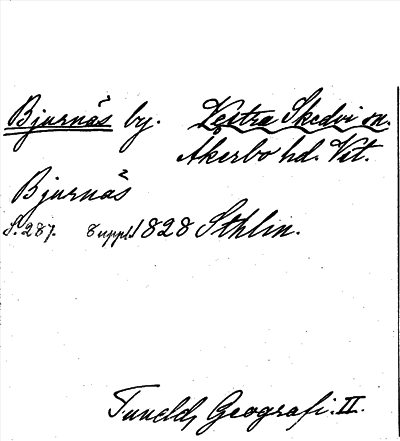 Bjurnäs by. Västra Skedvi sn.
Åkerbo hd. Vst.
Bjurnäs
S. 287. Suppl. 1828 Sthlm.
Tunelds Geografi. II.